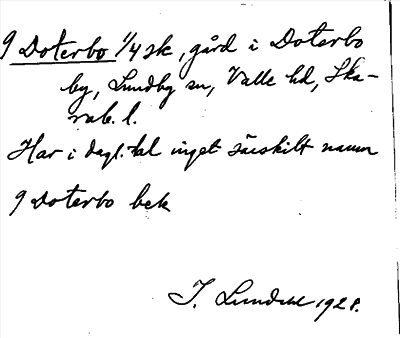 9 Doterbo 1/4 sk, gård i Doterbo
by, Lundby sn, Valle hd, Ska-
rab. l.
Har i dagl. tal inget särskilt namn
9 Doterbo bek
I. Lundahl 1928.